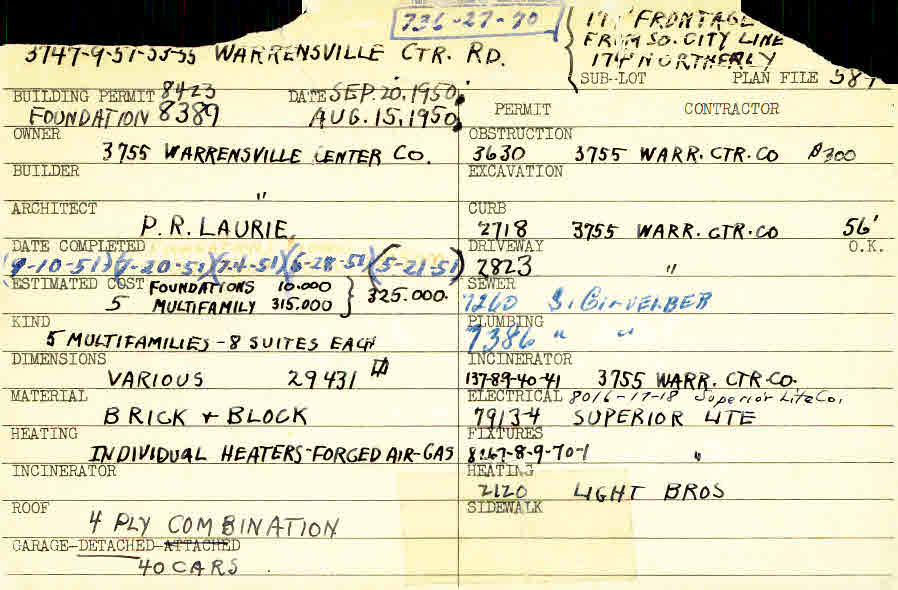 736-27-70
FRONTAGE
FROM SO. CITY LINE
174' NORTHERLY
3747-9-51-53-55 WARRENSVILLE CTR. RD.
SUB-LOT PLAN FILE
BUILDING PERMIT 8423 DATE SEP. 20, 1950
FOUNDATION 8389 AUG. 15, 1950
PERMIT CONTRACTOR
OWNER
3755 WARRENSVILLE CENTER CO.
BUILDER
"
ARCHITECT
P. R. LAURIE
DATE COMPLETED
(9-10-51) (7-20-51) (7-1-51) (6-28-51) (5-21-51)
ESTIMATED COST FOUNDATIONS 10.000
5 MULTIFAMILY 315.000 } 325.000.
KIND
5 MULTIFAMILIES - 8 SUITES EACH
DIMENSIONS
VARIOUS 29431
MATERIAL
BRICK + BLOCK
HEATING
INDIVIDUAL HEATERS-FORGED AIR-GAS
INCINERATOR
ROOF
4 PLY COMBINATION
GARAGE-DETACHED-ATTACHED
40 CARS
OBSTRUCTION
3630 3755 WARR. CTR. CO $300
EXCAVATION
CURB
2718 3755 WARR. CTR. CO 56'
DRIVEWAY O.K.
2823 "
SEWER
7260 S.
PLUMBING
7386 " "
INCINERATOR
137-89-40-41 3755 WARR. CTR. CO.
ELECTRICAL 8016-17-18 Superior Lite Co.
7913-4 SUPERIOR LITE
FIXTURES
8267-8-9-70-1 "
HEATING
2120 LIGHT BROS
SIDEWALK